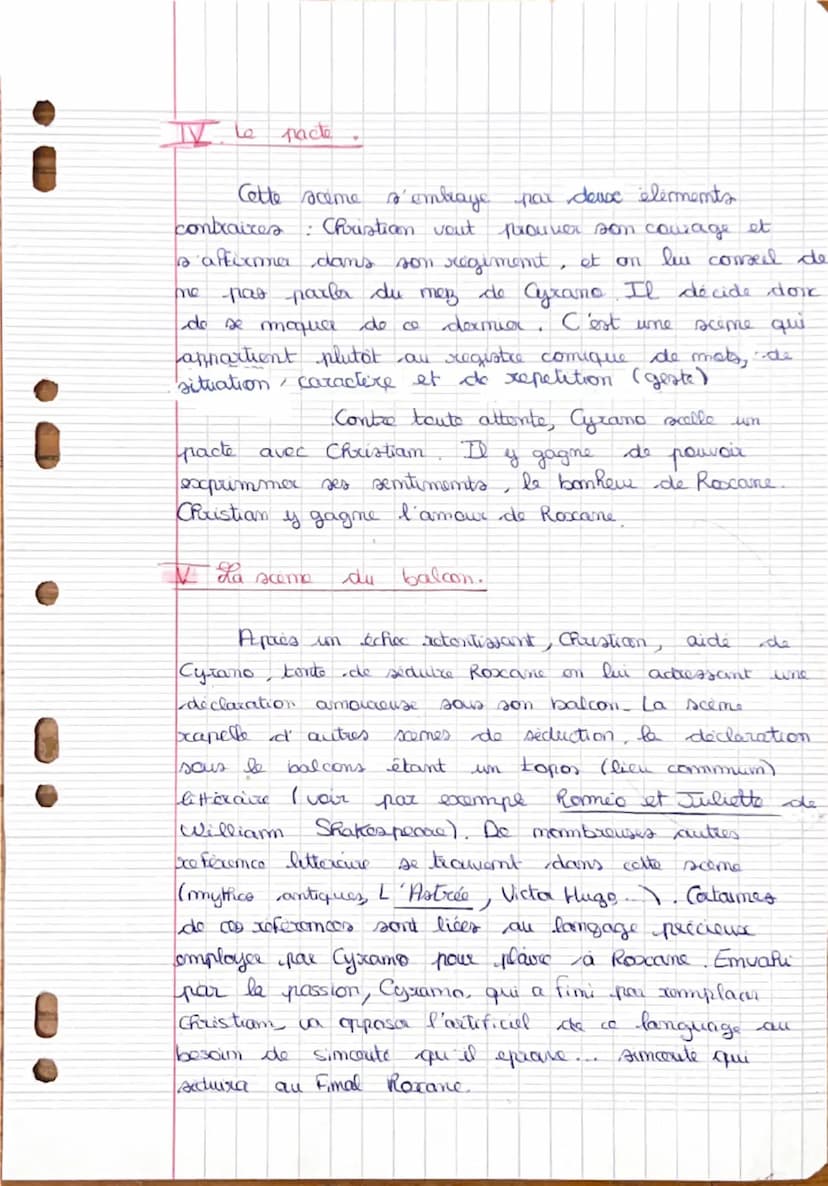 IV. Le pacte.
Cette scène s'embraye par deux éléments
contraires : Christian veut prouver son courage et
s'affirmer dans son régiment, et on lui conseil de
ne pas parler du nez de Cyrano. Il décide donc
de se moquer de ce dernier. C'est une scène qui
appartient plutôt au registre comique de mots, de
situation, caractère et de repetition (geste)
Contre toute attente, Cyrano scelle un
pacte avec Christian. Il y gagne de pouvoir
exprimmer ses sentiments, le bonheur de Roxane.
Christian y gagne l'amour de Roxane.
V La scène du balcon.
Après un échec retentissant, Christian, aidé de
Cyrano, tente de séduire Roxane en lui adressant une
déclaration amoureuse sous son balcon. La scène
rapelle d'autres scènes de séduction, la déclaration
sous le balcons étant un topos (lieu commun)
littéraire (voir par exemple Roméo et Juliette de
William Shakespeare). De nombreuses autres
référence littéraire se trouvent dans cette scène
(mythes antiques, L'Astrée, Victor Hugo...). Certaines
de ces références sont liées au langage précieux
employer par Cyrano pour plaire à Roxane. Envahi
par la passion, Cyrano, qui a fini par remplacer
Christian, va opposer l'artificiel de ce language au
besoin de sincerité qu'il eprouve... sincerité qui
seduira au Final Roxane.